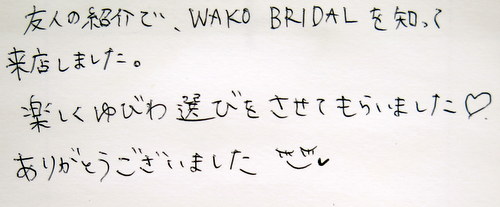 友人の紹介で、WAKO BRIDALを知って
来店しました。
楽しくゆびわ選びをさせてもらいました♡
ありがとうございました